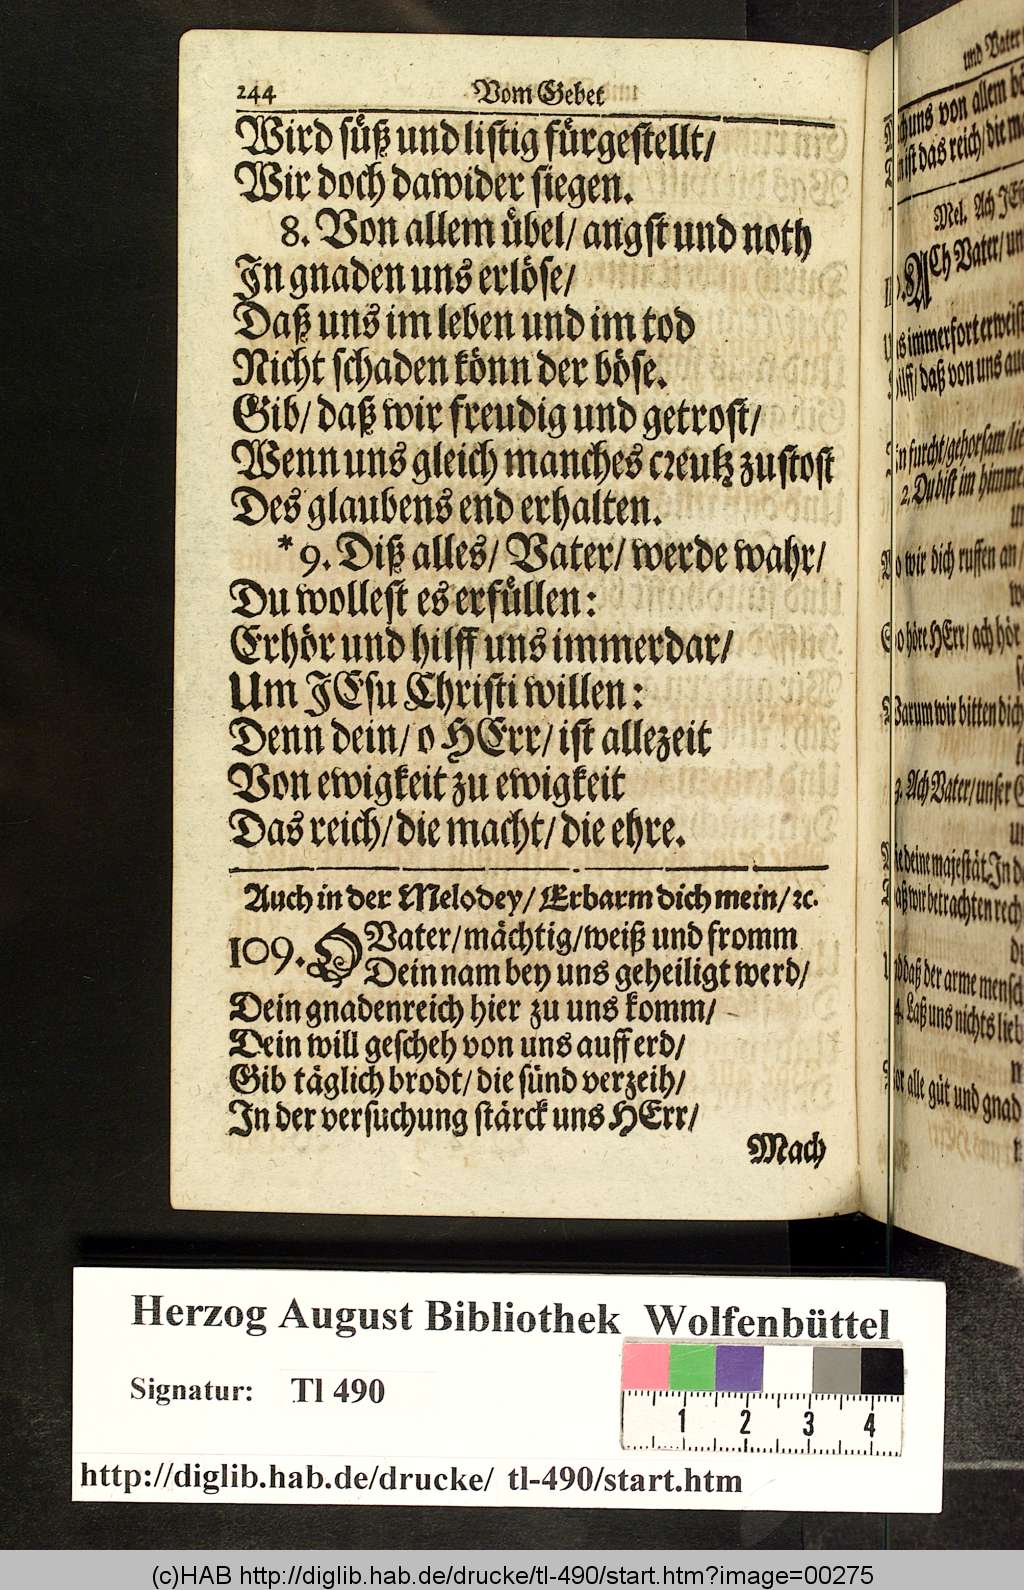 244 Vom Gebet
Wird süß und listig fürgestellt/
Wir doch dawider siegen.
8. Von allem übel/ angst und noth
In gnaden uns erlöse/
Daß uns im leben und im tod
Nicht schaden könn der böse.
Gib/ daß wir freudig und getrost/
Wenn uns gleich manches creutz zustost
Des glaubens end erhalten.
* 9. Diß alles/ Vater/ werde wahr/
Du wollest es erfüllen:
Erhör und hilff uns immerdar/
Um JEsu Christi willen:
Denn dein/ o HErr/ ist allezeit
Von ewigkeit zu ewigkeit
Das reich/ die macht/ die ehre.
Auch in der Melodey/ Erbarm dich mein/ ꝛc.
109. O Vater/ mächtig/ weiß und fromm
Dein nam bey uns geheiligt werd/
Dein gnadenreich hier zu uns komm/
Dein will gescheh von uns auff erd/
Gib täglich brodt/ die sünd verzeih/
In der versuchung stärck uns HErr/
Mach
und Vater
uns von allem
ist das reich/ die
Mel. Ach JEs
ACh Vater/ un
immerfort erweis
hilff/ daß von uns
furcht/ gehorsam/ lie
2. Du bist im himme
wir dich ruffen an/
So höre HErr/ ach hör
Warum wir bitten dich
3. Ach Vater/ unser
deine majestät. In
wir betrachten rech
daß der arme mensch
4. Laß uns nichts lieb
alle güt und gnad
Herzog August Bibliothek Wolfenbüttel
Signatur: Tl 490
1 2 3 4
http://diglib.hab.de/drucke/ tl-490/start.htm
(c)HAB http://diglib.hab.de/drucke/tl-490/start.htm?image=00275